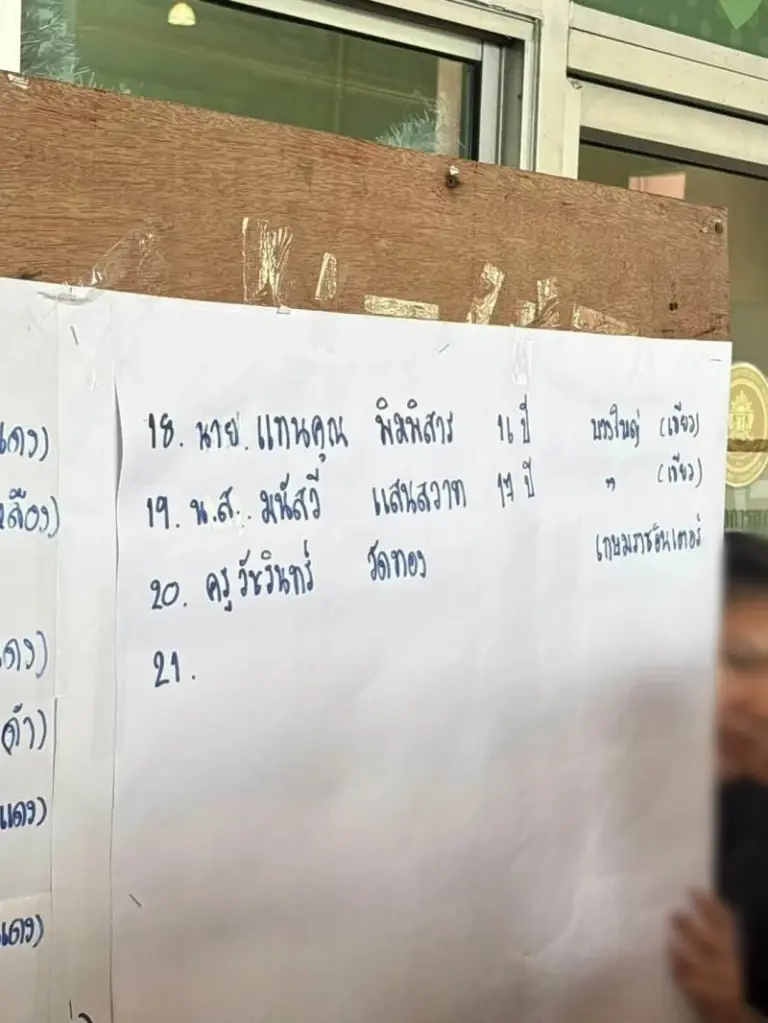 แดง)
เหลือง)
แดง)
ดำ)
แดง)
แดง)
18. นาย. แทนคุณ พิมพิสาร 16 ปี บางใหญ่ (เขียว)
19. น.ส. มนัสวี แสนสวาท 17 ปี " (เขียว)
20. ครูวัชรินทร์ วัดทอง เกษมราชอินเตอร์
21.